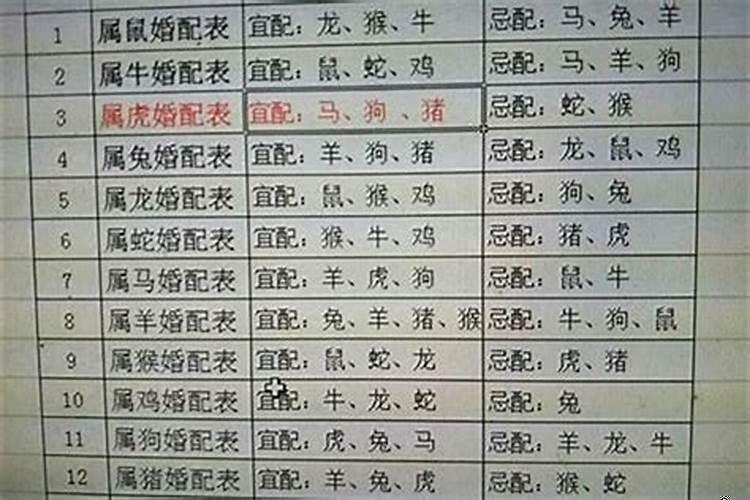 1 属鼠婚配表 宜配：龙、猴、牛 忌配：马、兔、羊
2 属牛婚配表 宜配：鼠、蛇、鸡 忌配：马、羊、狗
3 属虎婚配表 宜配：马、狗 、猪 忌配：蛇、猴
4 属兔婚配表 宜配：羊、狗、猪 忌配：龙、鼠、鸡
5 属龙婚配表 宜配：鼠、猴、鸡 忌配：狗、兔
6 属蛇婚配表 宜配：猴、牛、鸡 忌配：猪、虎
7 属马婚配表 宜配：羊、虎、狗 忌配：鼠、牛
8 属羊婚配表 宜配：兔、羊、猪、猴 忌配：牛、狗、鼠
9 属猴婚配表 宜配：鼠、蛇、龙 忌配：虎、猪
10 属鸡婚配表 宜配：牛、龙、蛇 忌配：兔
11 属狗婚配表 宜配：虎、兔、马 忌配：羊、龙、牛
12 属猪婚配表 宜配：羊、兔、虎 忌配：猴、蛇